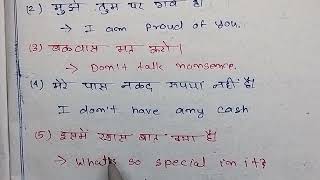 (2) मुझे तुम पर गर्व है।
→ I am Proud of You.
(3) बकवास मत करो।
→ Don't talk nonsense.
(4) मेरे पास नकद रुपया नहीं है।
I don't have any cash
(5) इसमें खास बात क्या है।
→ What's so special in it?